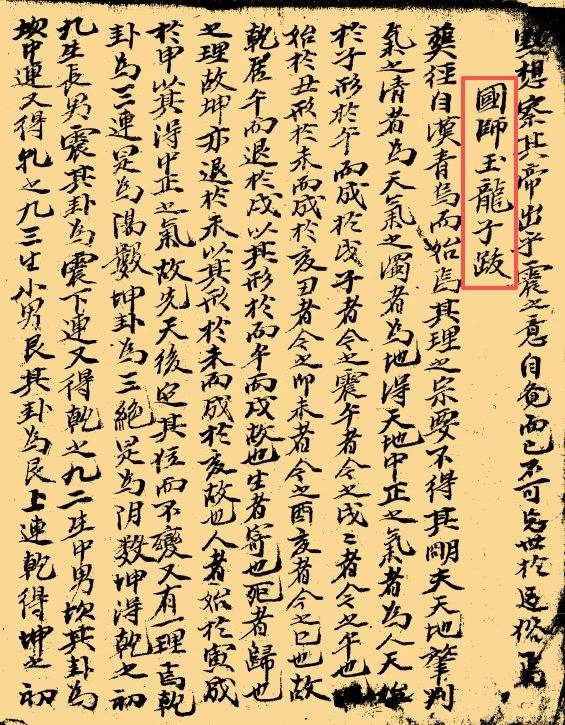 想察其帝出乎震之意自餒而已不可怠世於
國師玉龍子跋
葬徑自漢青烏而始焉其理之宗要不得其明夫天地肇判
氣之清者為天氣之濁者為地得天地中正之氣者為人天
於子形於午而成於戌子者今之震午者今之戌戌者今之午也
始於丑形於未而成於亥丑者今之卯未者今之酉亥者今之巳也故
乾居午而退於戌以其形於而午而戌故也生者寄也死者歸也
之理故坤亦退於未以其形於未而成於亥故也人者始於寅成
於申以其得中正之氣故先天後定其位而不變又有一理焉乾
卦為三連是為陽數坤卦為三絶是為阴数坤得乾之初
九生長男震其卦為震下連又得乾之九二生中男坎其卦為
坎中連又得乾之九三生小男艮其卦為艮上連乾得坤之初